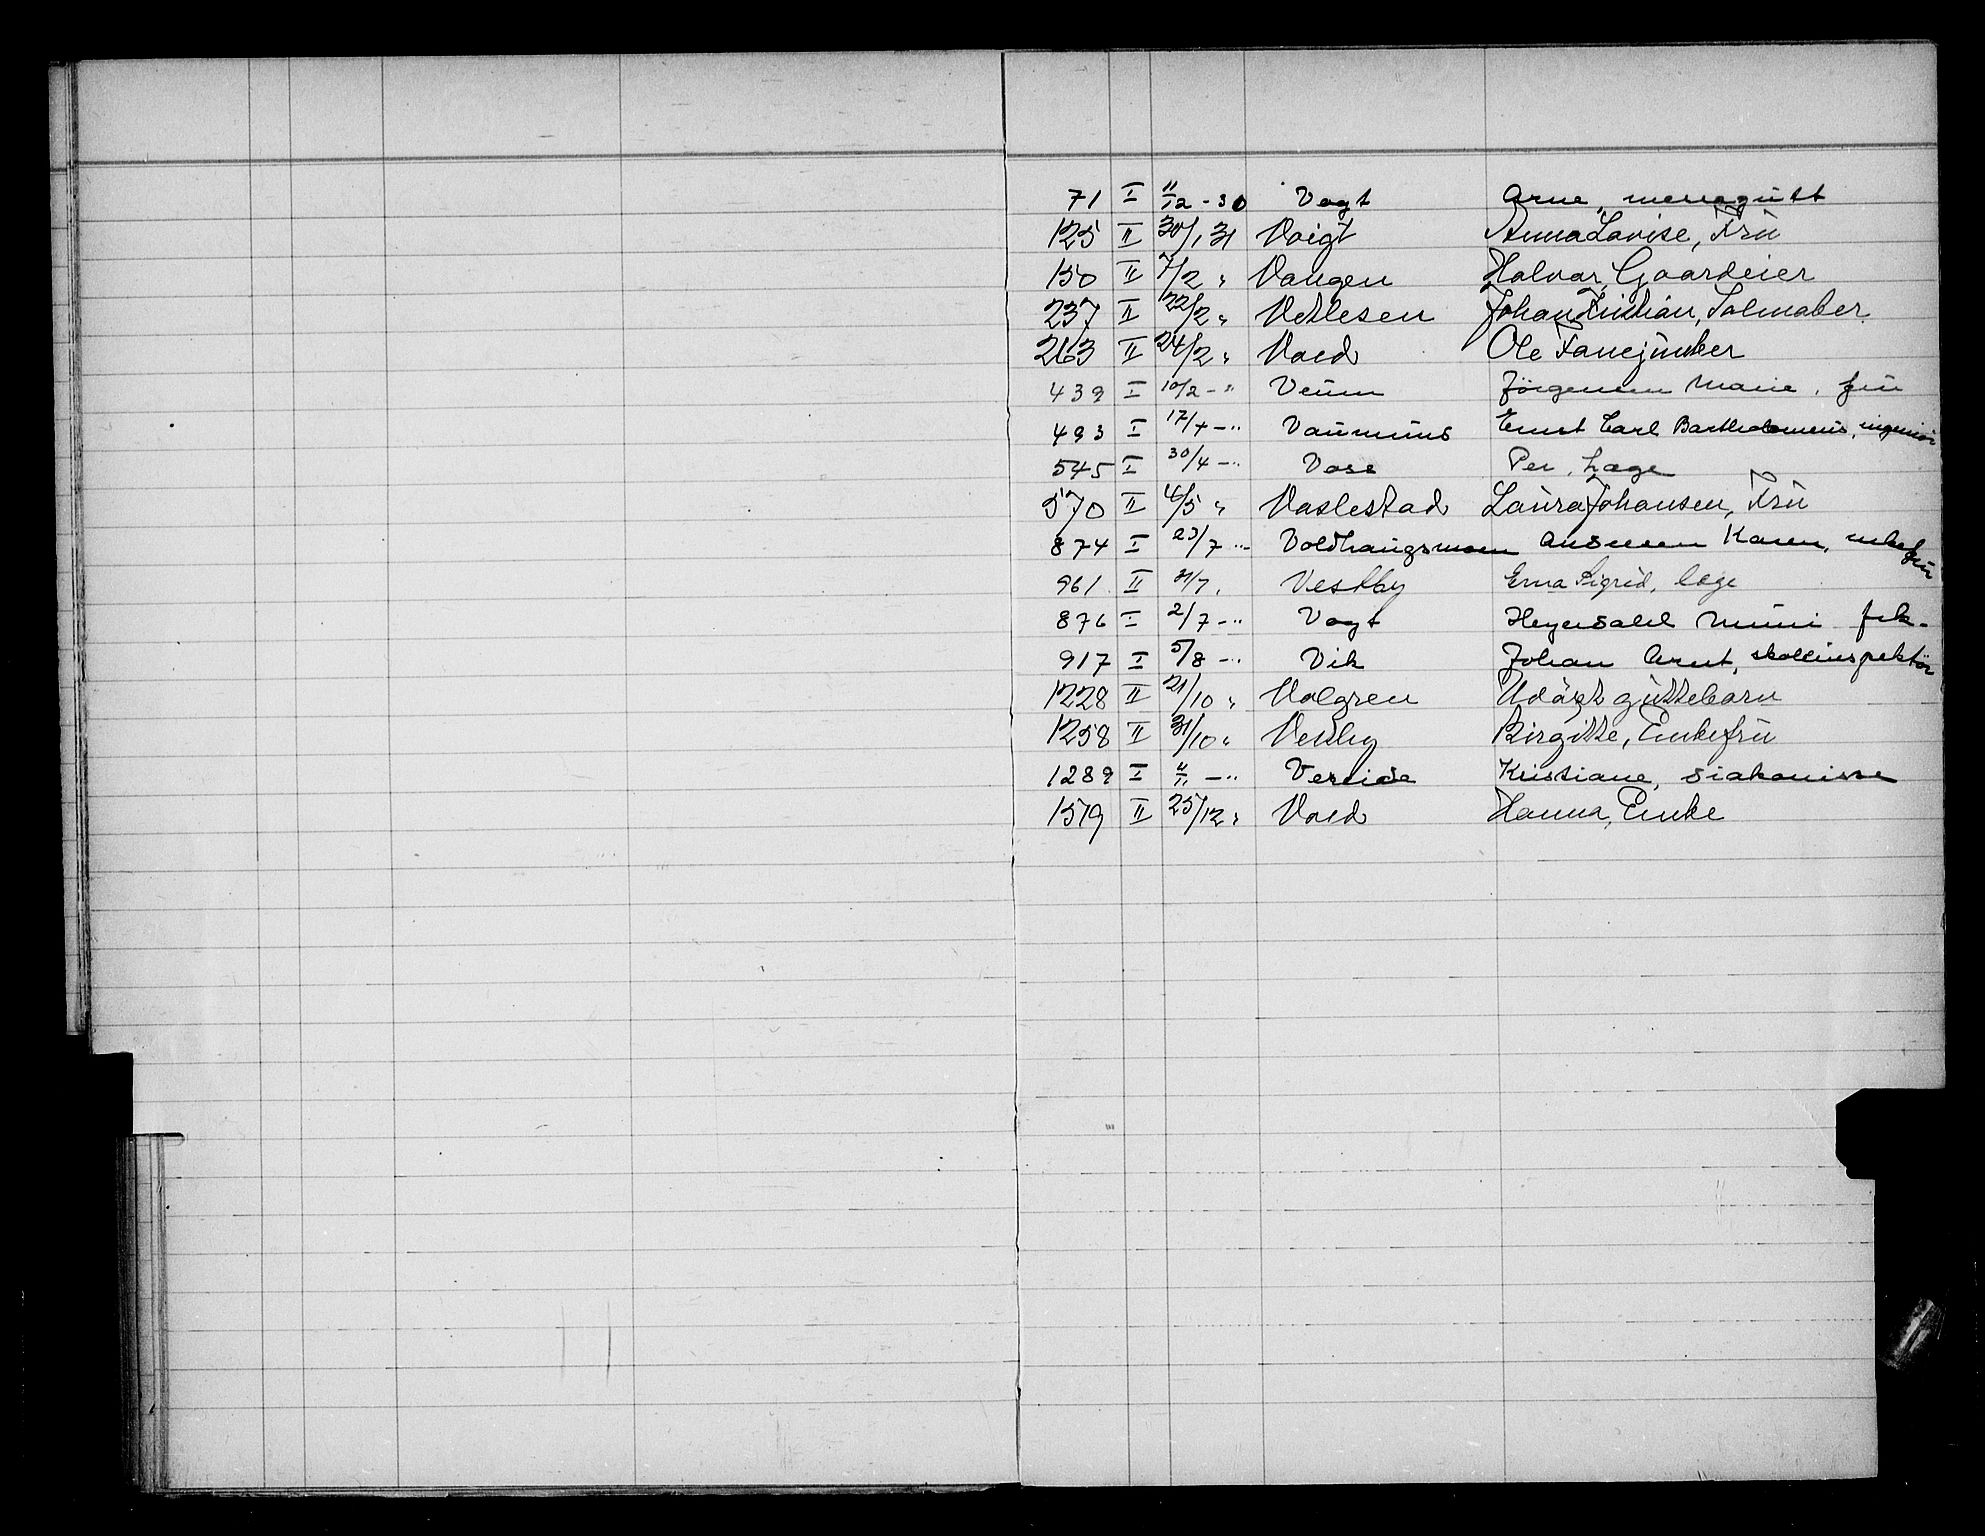 71 I 11/12 - 30 Vogt Arne, messegutt
125 II 30/1 31 Voigt Anna Lovise, Fru
150 II 7/2 " Vangen Halvar, Gaardeier
237 II 22/2 " Vetlesen Johan Kristian, Salmaker
263 II 24/2 " Vold Ole Fanejunker
439 I 10/2 - " Veum Jörgensen Marie, fru
493 I 17/4 - " Ernst Carl Bartholomeus, ingeniör
545 I 30/4 - " Vose Per, Læge
570 II 4/5 " Vaslestad Laura Johansen, Fru
874 I 23/7 " Voldhaugsmoen Ansteen Karen, enkefru
961 II 31/7 " Vestby Erna Sigrid, læge
876 I 2/7 - " Vogt Heyerdahl Mimi frk.
917 I 5/8 - " Vik Johan Arnt, skoleinspektör
1228 II 21/10 " Valgren Udöpt guttebarn
1258 II 31/10 " Vestby Birgitte, Enkefru
1289 I 11/11 - " Vereide Kristiane, diakonisse
1519 II 25/12 " Vold Hanna, Enke